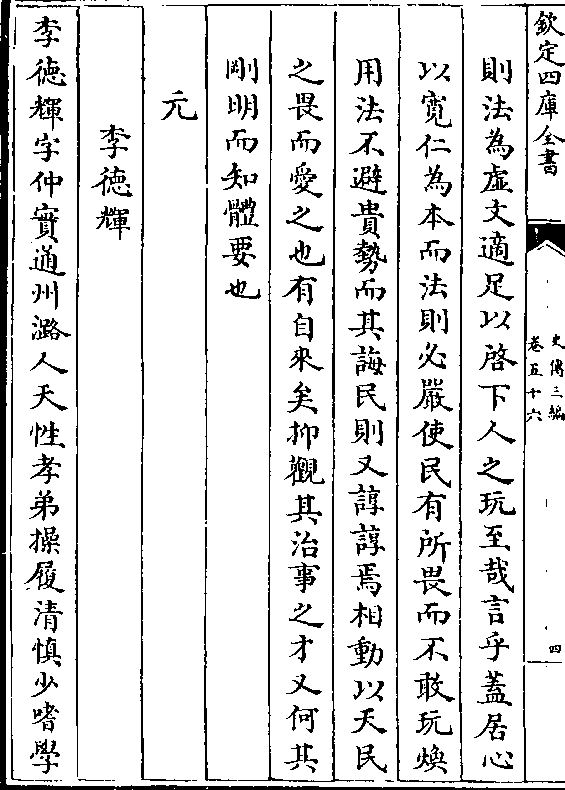 欽定四庫全書
史傳三編
卷五十六
四
則法為虛文適足以啓下人之玩至哉言乎蓋居心
以寛仁為本而法則必嚴使民有所畏而不敢玩煥
用法不避貴勢而其誨民則又諄諄焉相動以天民
之畏而愛之也有自來矣抑觀其治事之才又何其
剛明而知體要也
元
李德輝
李德輝字仲實通州潞人天性孝弟操履清慎少嗜學